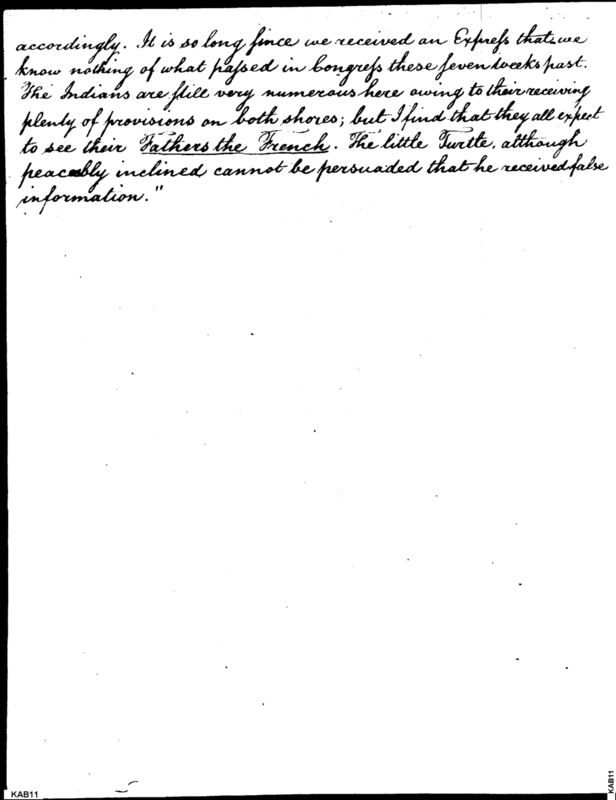 accordingly. It is so long ſince we received an Expreſs that we
know nothing of what paſsed in Congreſs these ſeven weeks past.
The Indians are ſtill very numerous here owing to their receiving
plenty of provisions on both shores; but I find that they all expect
to see their Fathers the French. The little Turtle, although
peaceably inclined cannot be persuaded that he received false
information."
KAB11
KAB11